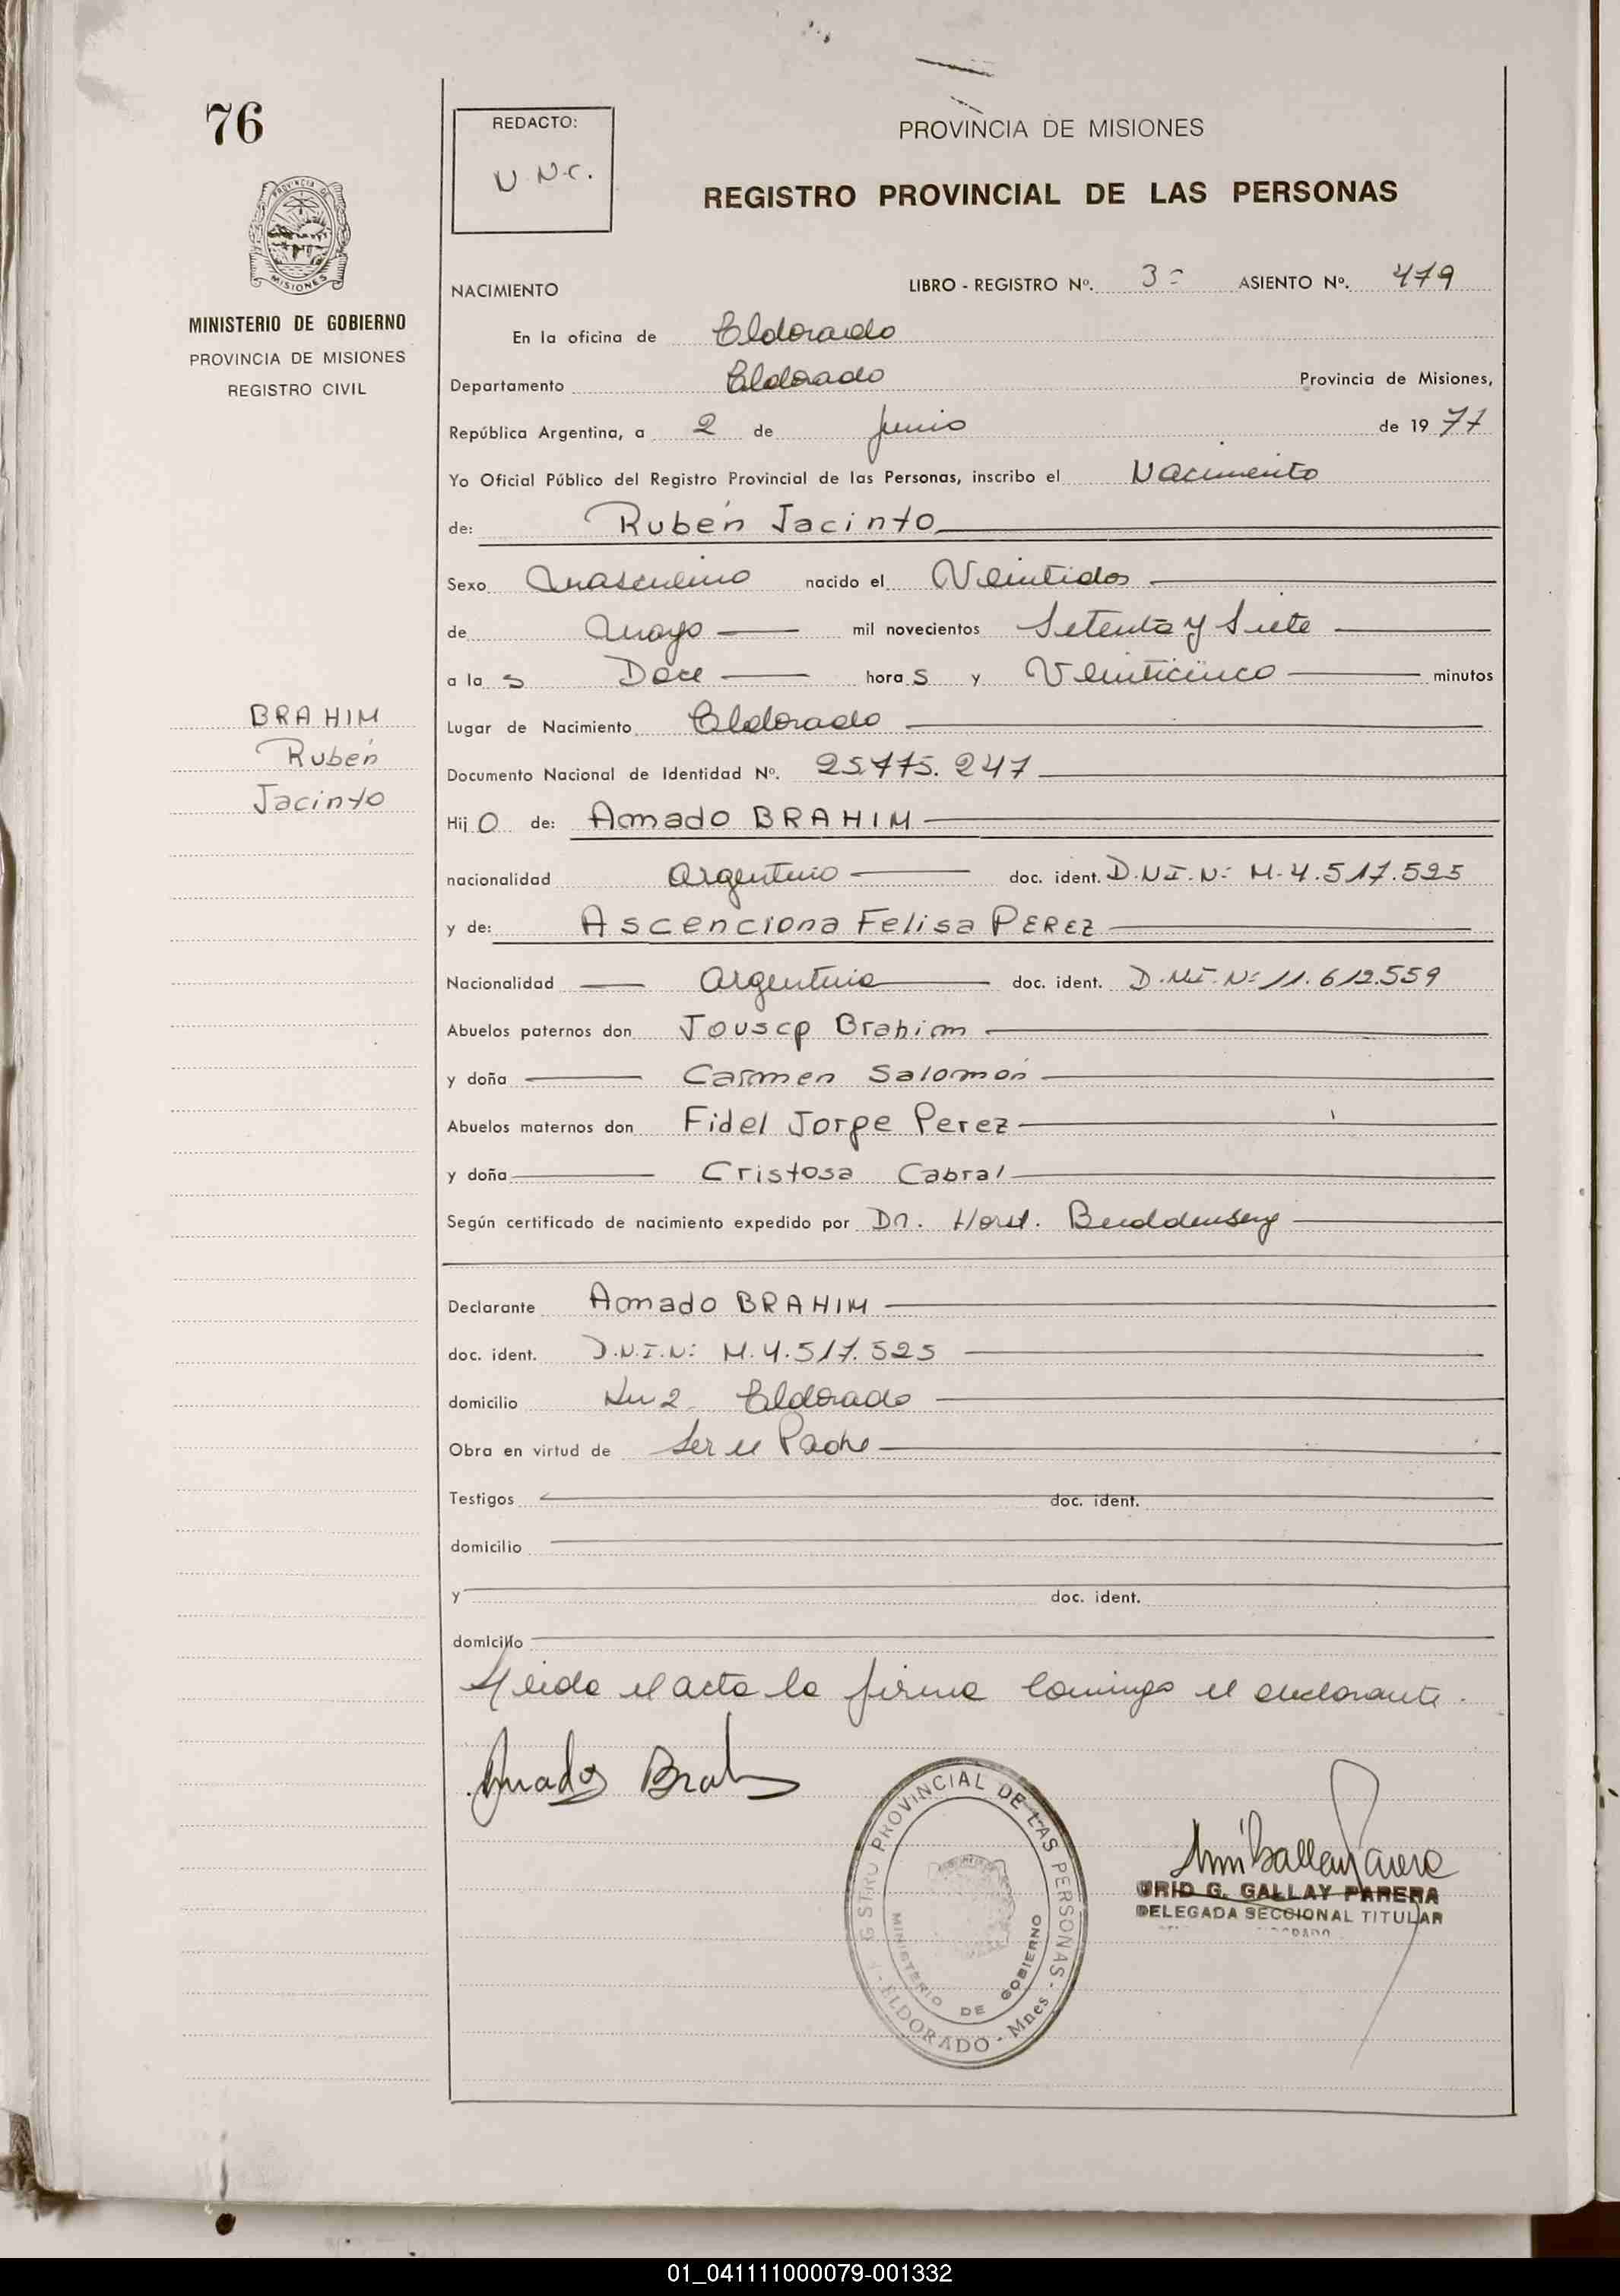 76
REDACTO:
U.N.C.
PROVINCIA DE MISIONES
REGISTRO PROVINCIAL DE LAS PERSONAS
MINISTERIO DE GOBIERNO
PROVINCIA DE MISIONES
REGISTRO CIVIL
NACIMIENTO LIBRO - REGISTRO Nº. 3= ASIENTO Nº. 479
En la oficina de Eldorado
Departamento Eldorado Provincia de Misiones,
República Argentina, a 2 de Junio de 19 77
Yo Oficial Público del Registro Provincial de las Personas, inscribo el Nacimiento
de: Rubén Jacinto
Sexo Masculino nacido el Veintidos
de Mayo mil novecientos Setenta y Siete
a la s Doce hora s y Veinticinco minutos
BRAHIM
Rubén
Jacinto
Lugar de Nacimiento Eldorado
Documento Nacional de Identidad Nº. 25.775.247
Hij o de: Amado BRAHIM
nacionalidad Argentino doc. ident. D.N.I.N: M.4.517.525
y de: Ascenciona Felisa PEREZ
Nacionalidad Argentina doc. ident. D.N.I.N: 11.612.559
Abuelos paternos don Brahim
y doña Carmen Salomón
Abuelos maternos don Fidel Jorge Perez
y doña Cristosa Cabral
Según certificado de nacimiento expedido por Dr. Horst.
Declarante Amado BRAHIM
doc. ident. D.N.I.N: M.4.517.525
domicilio Km 2 Eldorado
Obra en virtud de Ser el Padre
Testigos doc. ident.
domicilio
y doc. ident.
domicilio
Leida el acta la firma conmigo el declarante.
Amado Brah
REGISTRO PROVINCIAL DE LAS PERSONAS - ELDORADO - Mnes.
MINISTERIO DE GOBIERNO
G. GALLAY PARERA
DELEGADA SECCIONAL TITULAR
01_041111000079-001332